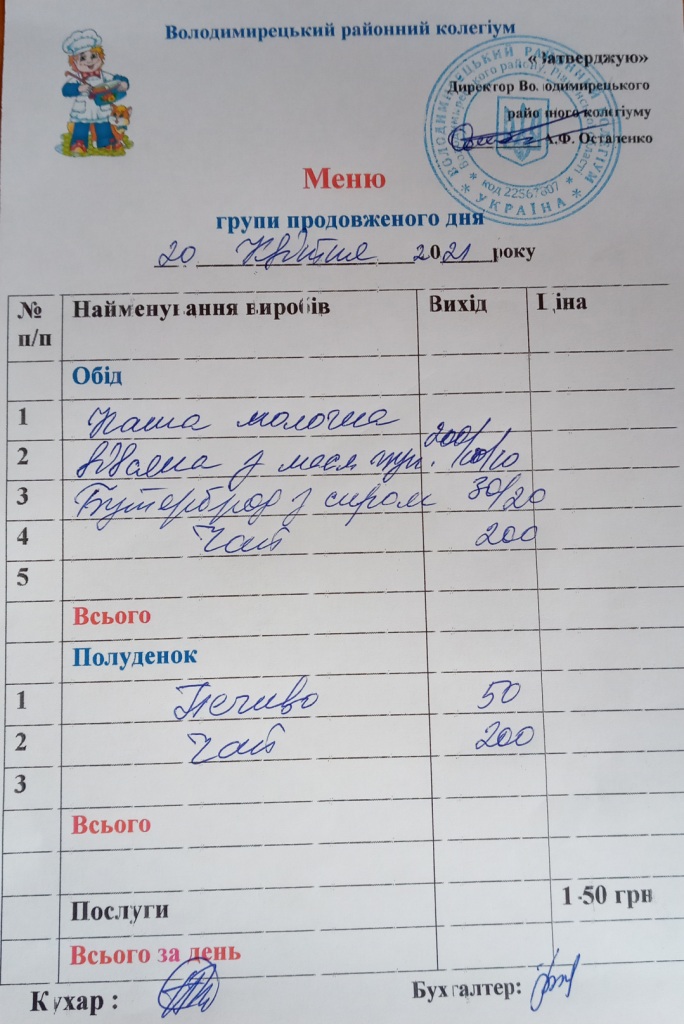 Володимирецький районний колегіум
«Затверджую»
Директор Володимирецького
районного колегіуму
А.Ф. Остапенко
код 22567607
УКРАЇНА
Меню
групи продовженого дня
20 Квітня 2021 року
№ п/п Найменування виробів Вихід Ціна
Обід
1 Каша молочна
2 вівсяна з масл 200/10/10
3 Бутерброд з сиром 30/20
4 Чай 200
5
Всього
Полуденок
1 Печиво 50
2 Чай 200
3
Всього
Послуги 1-50 грн
Всього за день
Кухар :
Бухгалтер: